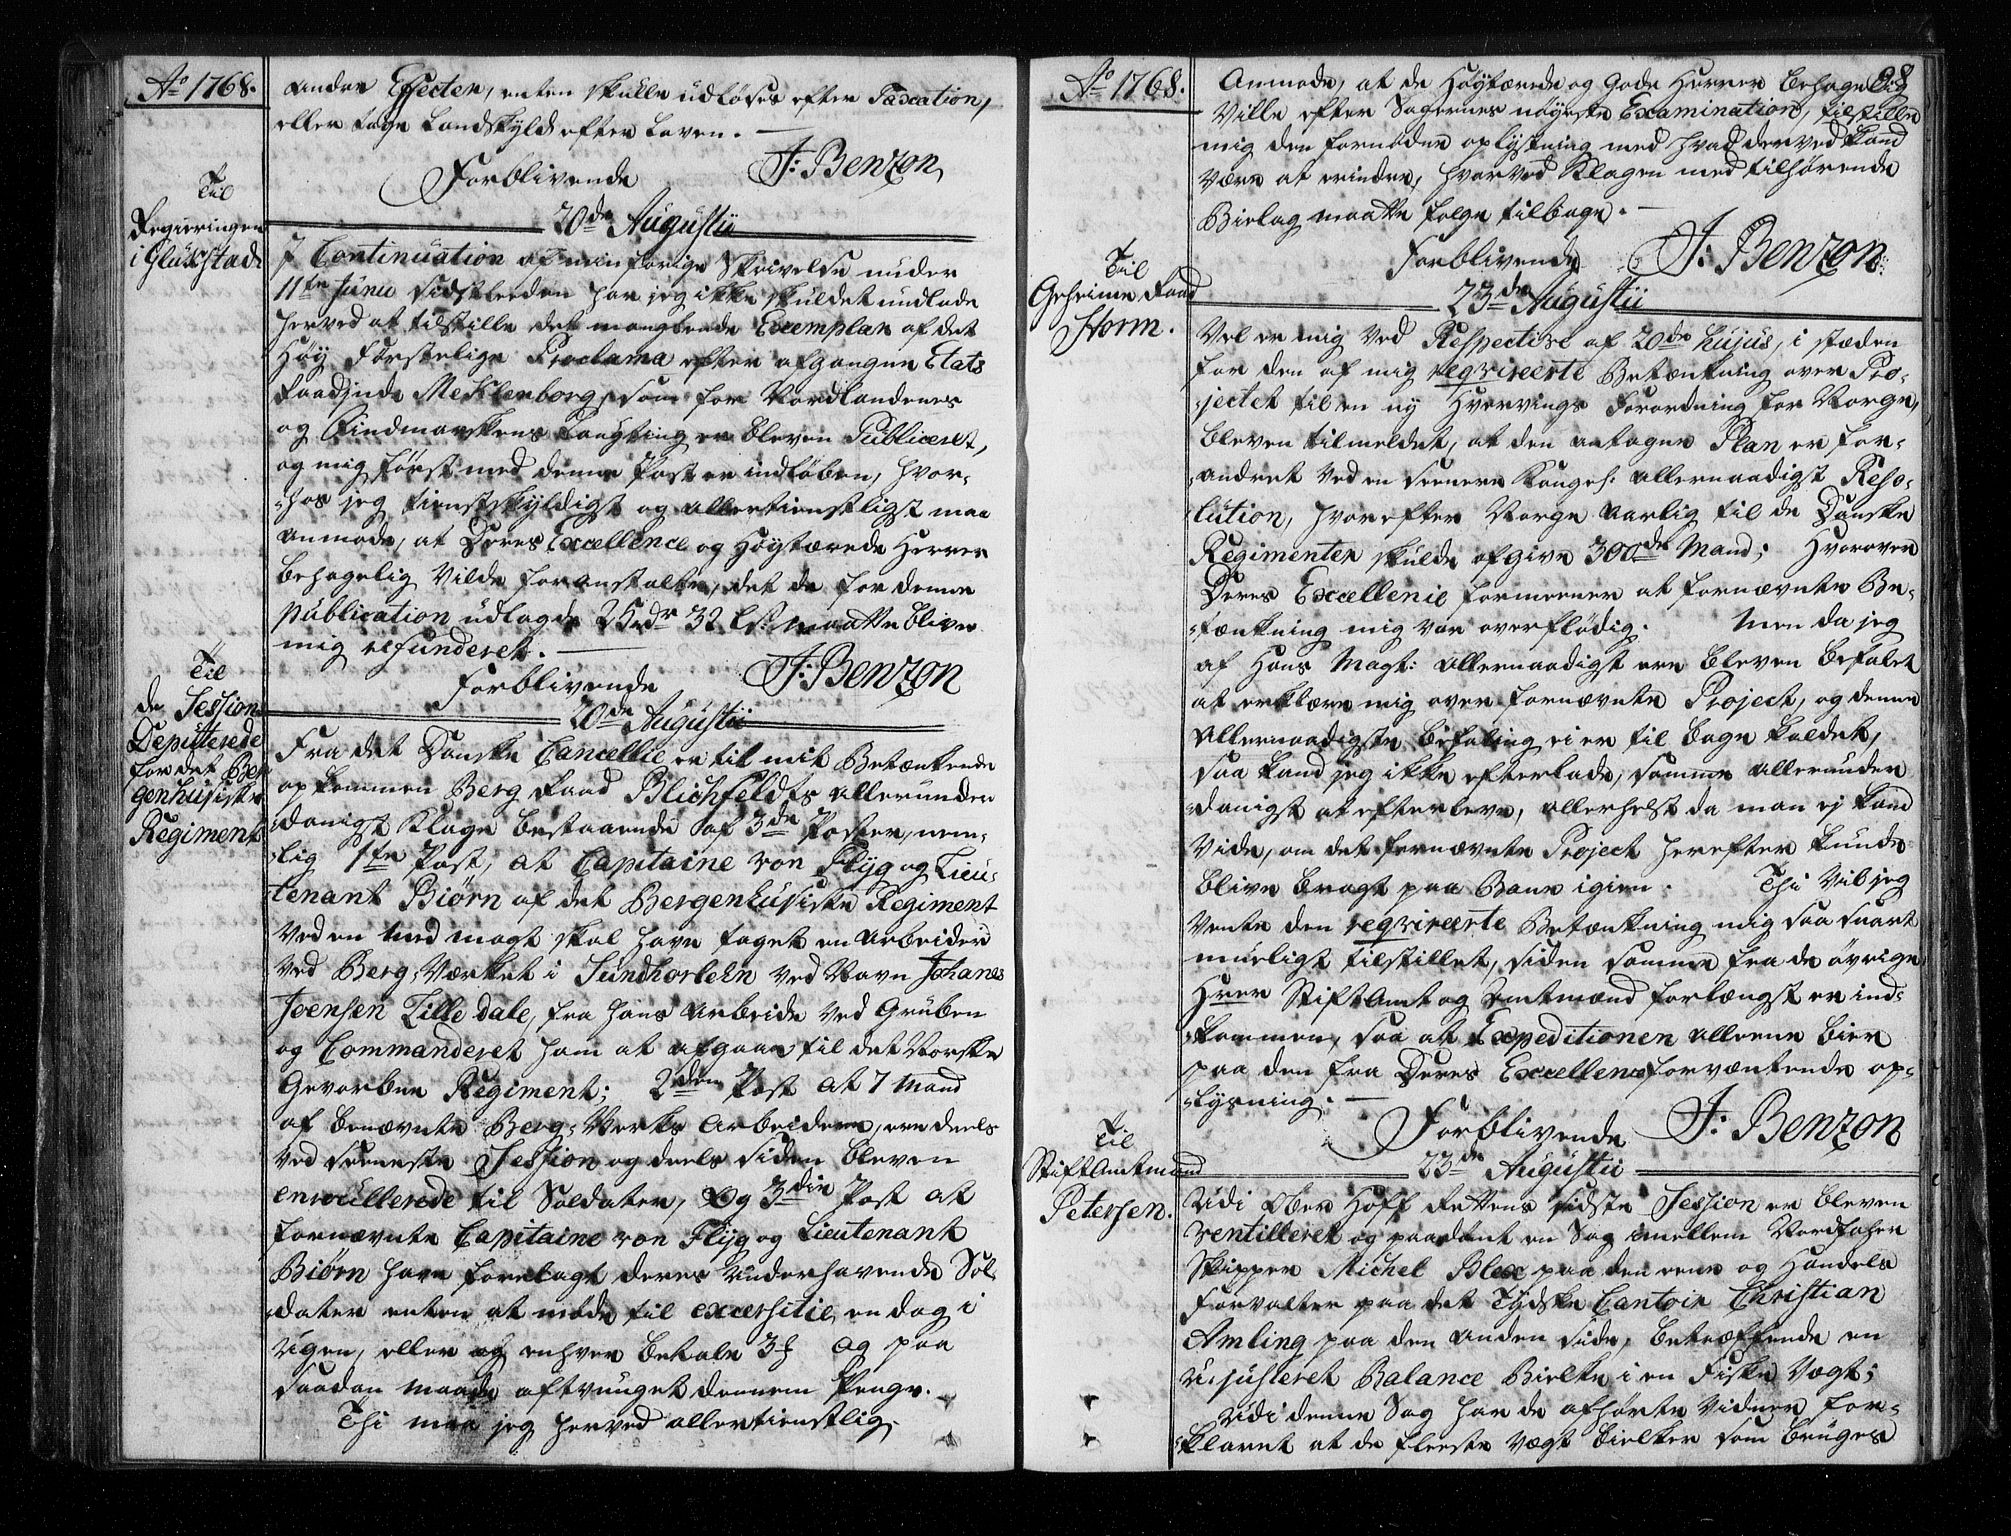 Ao 1768.
andre Effecter, enten skulle udløses efter Taxcation,
eller tage Landskyld efter Loven.
Forblivende J: Benzon
20de Augustii
Til
Regieringen
i Glückstad
J Continuation af min forige Skrivelse under
11te Junii sidstleeden har jeg ikke skuldet undlade
herved at tilstille det manglende Exemplar af det
Høy Førstelige Proclama efter afgangne Etats
Raadinde Meklenborg, som for Nordlandenes
og Findmarkens Laugting er bleven Publiceret,
og mig først med denne Post er indløben, hvor-
hos jeg tienstskyldigst og allertienstligst maa
anmode, at Deres Excellence og Høystærede Herrer
behagelig vilde foranstalte, det de for denne
publication udlagde 25rdr 32 lst maatte blive
mig refunderet.
Forblivende J: Benzon
20de Augustii
Til
de Session
Deputterede
for det Ber
genhusiske
Regiment
Fra det Danske Cancellie er til mit Betænkende
opkommen Berg Raad Blichfeldts allerunder
danigst Klage bestaaende af 3de Poster, nem-
lig 1te Post, at Capitaine von Flyg og Lieu-
tenant Biørn af det Bergenhusiske Regiment
ved en med magt skal have taget en arbeider
ved Berg-Værket i Sundhorlehn ved Navn Johanes
Joensen Lilledale, fra hans arbeide ved Gruben
og Commanderet ham at afgaae til det Norske
Gevorbne Regiment; 2den Post at 7 Mand
af benævnte Berg-Verks Arbeidere, ere deels
ved seeneste Session og deels siden bleven
enroullerede til Soldater, Og 3die Post at
fornævnte Capitaine von Flyg og Lieutenant
Biørn have forelagt deres underhavende Sol
dater enten at møde til excersitie en dag i
Ugen, eller og enhver betale 3ß og paa
saadan maade aftvunget dennem Penge.
Thi maa jeg herved allertienstlig
Ao 1768.
98
Anmode, at de Høystærede og Gode Herrer behagelig
ville efter Sagernes nøyeste Examination, tilstille
mig den fornøden oplystning med hvad derved kand
være at erindre, hvorved Klagen med tilhørende
Bielag maatte følge tilbage.
Forblivende J: Benzon
23de Augustii
Til
Geheime Raad
Storm.
Vel er mig ved Respective af 20de hujus, i stæden
for den af mig reqvireerte Betænkning over Pro-
jectet til en ny Hvervings Forordning for Norge,
bleven tilmeldet, at den antagne Plan er for-
andret ved en seenere Kongel: allernaadigst Reso-
lution, hvorefter Norge aarlig til de Danske
Regimenter skulde afgive 300de Mand; Hvorover
Deres Excellenie formeener at fornævnte Be-
tænkning mig var overflødig. Men da jeg
af Hans Mayt: allernaadigst ere bleven befalet
at erklære mig over fornævnte Project, og denne
allernaadigste befaling ei er til bage kaldet,
saa kand jeg ikke efterlade, samme allerunder
danigst at efterleve, allerhelst da man ej kand
vide, om det fornævnte Project herefter kunde
blive bragt paa Bane igien. Thi vil jeg
vente den reqvireerte Betænkning mig saa snart
mueligt tilstillet, siden samme fra de øvrige
Hrer Stift Amt og Amtmænd forlængst er ind-
kommen, saa at Expeditionen alleene bier
paa den fra Deres Excellence forventende op-
lysning.
Forblivende J: Benzon
23de Augustii
Til
Stift Amtmand
Petersen.
Udi Ober Hoff Rettens sidste Session er bleven
ventilleret og paadømt en Sag imellem Nordfahrer
Skipper Michel Blex paa den eene og Handels
Forvalter paa det Tydske Cantoir Christian
Amling paa den anden side, betræffende en
u-justeret Balance Bielke i en Fiske Vægt;
Udi denne Sag har de afhørte vidner for-
klaret at de fleeste vægt bielker som bruges